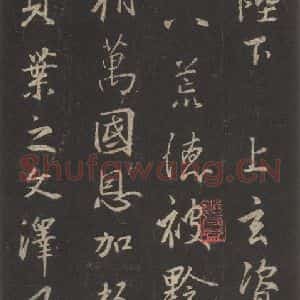 陛下上玄資
八荒德被黔
朝萬國恩加朽
貝葉之文澤及
Shufawang.CN